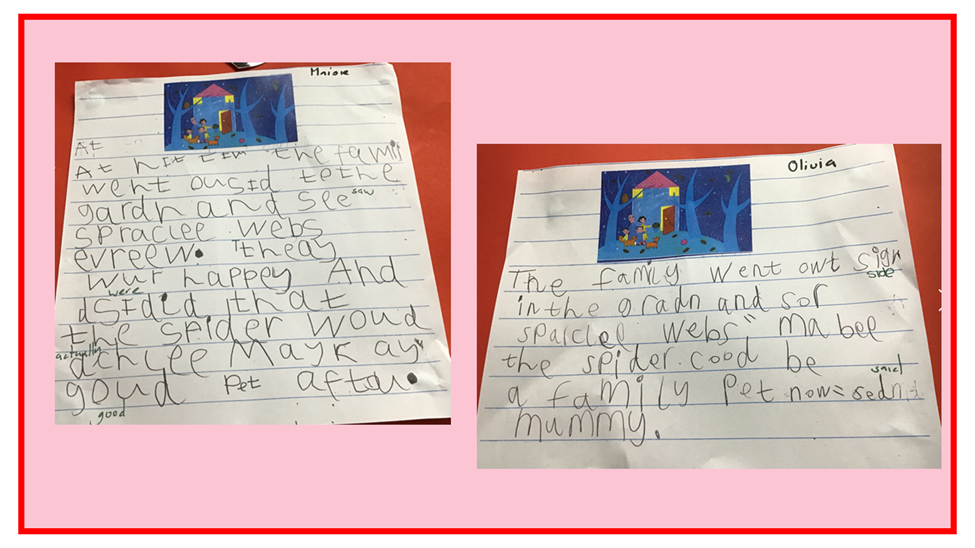 At
At nit tim the famii
went ousid to the
gardn and see saw
spraclee webs
evreew. theay
wur happey And
were
dsidid that
the spider woud
actually
achlee Mayk ay
goud Pet aftou.
good
Olivia
The family went owt sign
side
in the gradn and sor
sparclel webs" mabee
the spider. cood be
said
a family Pet now= sedn
mummy.